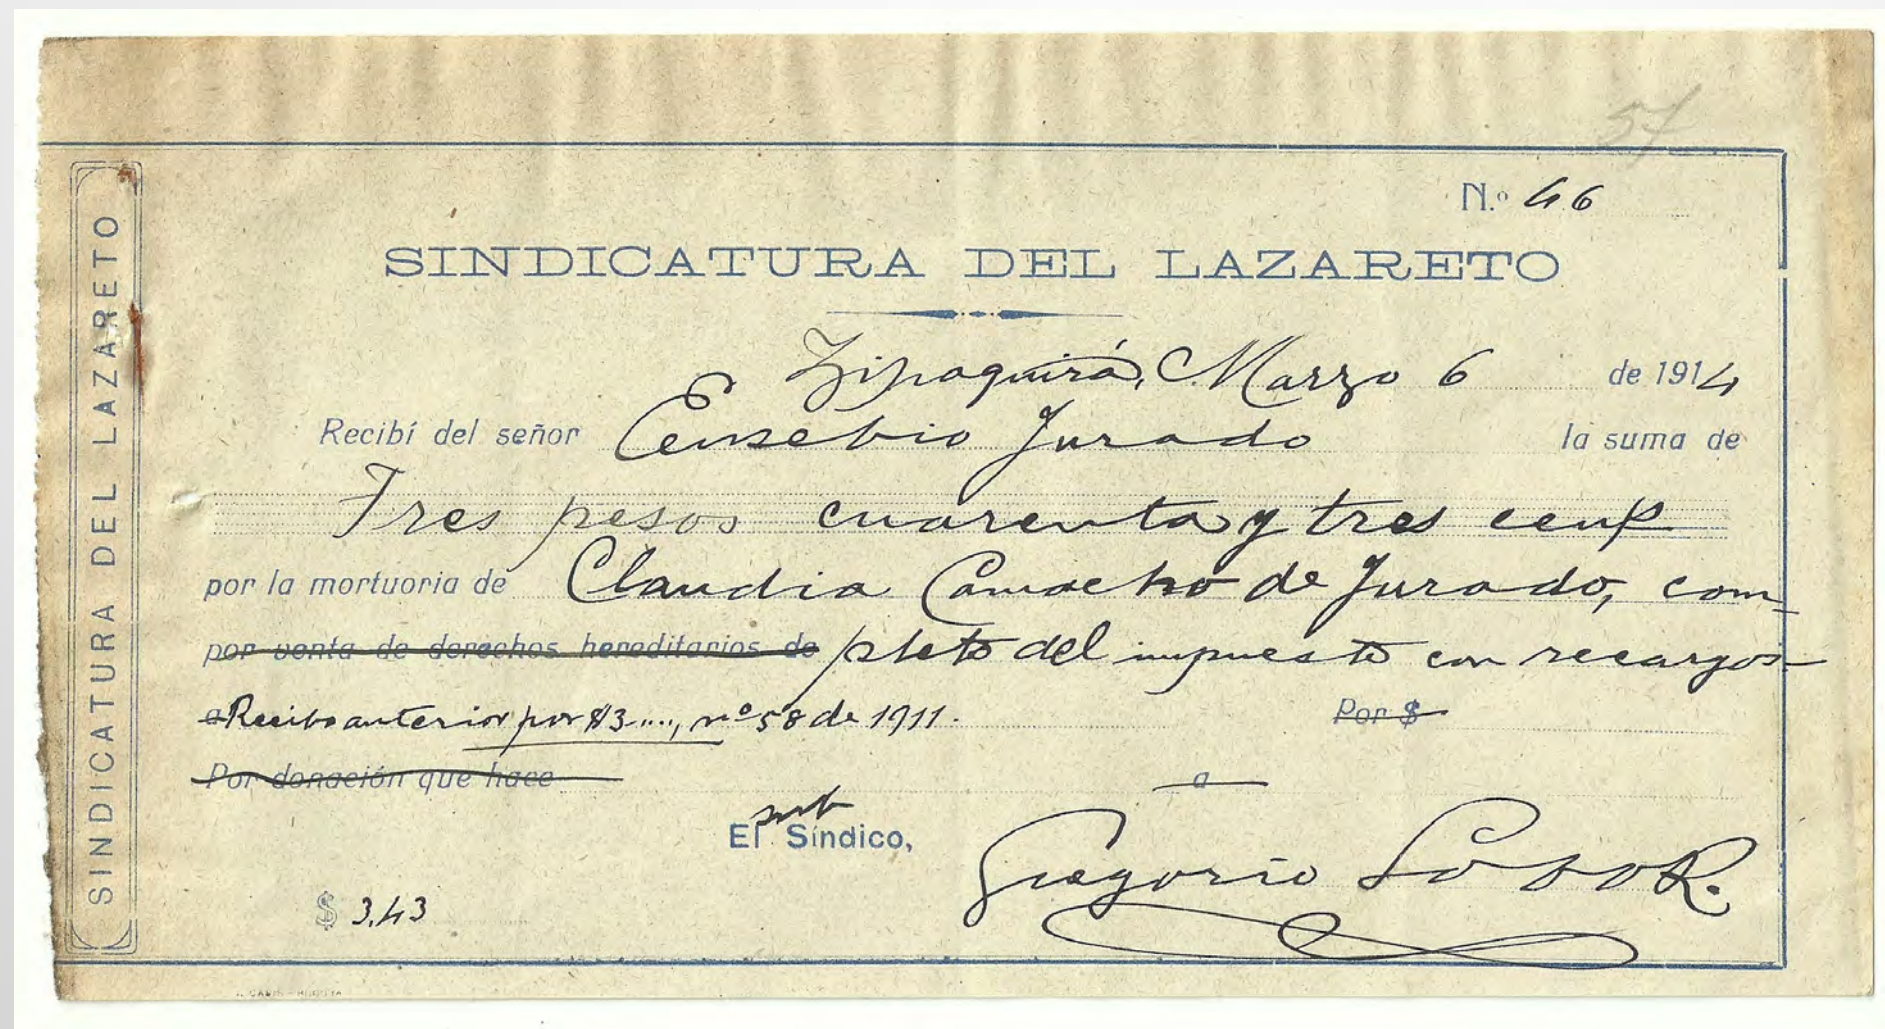 57
N.º 46
SINDICATURA DEL LAZARETO
SINDICATURA DEL LAZARETO
Zipaquirá, Marzo 6 de 1914
Recibí del señor Eusebio Jurado la suma de
Tres pesos cuarenta y tres
por la mortuoria de Claudia Camacho de Jurado, com-
por venta de derechos hereditarios de pleto del impuesto con recargos
a Recibo anterior por $3...., nº 58 de 1911. Por $
Por donación que hace a
sub
El Síndico,
Gregorio R.
$ 3,43